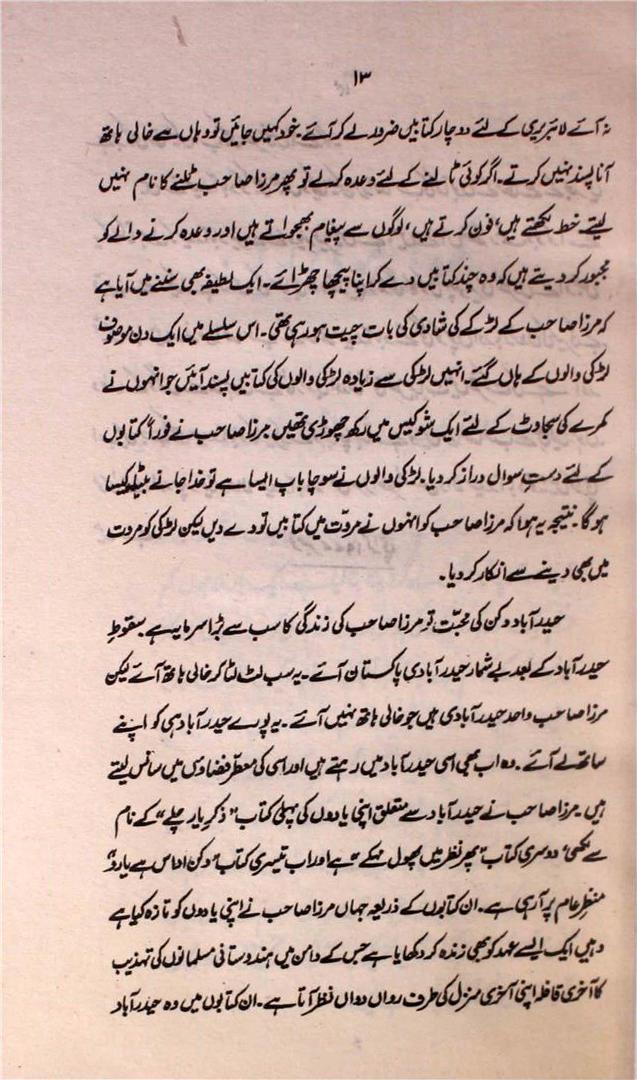 ۱۳
نہ آئے لائبریری کے لئے دوچار کتابیں ضرور لے کر آئے۔ خود کہیں جائیں تو وہاں سے خالی ہاتھ
آنا پسند نہیں کرتے۔ اگر کوئی ٹالنے کے لئے وعدہ کرلے تو پھر مرزا صاحب ٹلنے کا نام نہیں
لیتے۔ خط لکھتے ہیں، فون کرتے ہیں، لوگوں سے پیغام بھجواتے ہیں اور وعدہ کرنے والے کو
مجبور کر دیتے ہیں کہ وہ چند کتابیں دے کر اپنا پیچھا چھڑائے۔ ایک لطیفہ بھی سننے میں آیا ہے
کہ مرزا صاحب کے لڑکے کی شادی کی بات چیت ہو رہی تھی۔ اس سلسلے میں ایک دن موصوف
لڑکی والوں کے ہاں گئے۔ انہیں لڑکی سے زیادہ لڑکی والوں کی کتابیں پسند آئیں جو انہوں نے
کمرے کی سجاوٹ کے لئے ایک شوکیس میں رکھ چھوڑی تھیں۔ مرزا صاحب نے فوراً کتابوں
کے لئے دستِ سوال دراز کر دیا۔ لڑکی والوں نے سوچا باپ ایسا ہے تو خدا جانے بیٹا کیسا
ہوگا۔ نتیجہ یہ ہوا کہ مرزا صاحب کو انہوں نے مروّت میں کتابیں تو دے دیں لیکن لڑکی کو مروت
میں بھی دینے سے انکار کر دیا۔
حیدرآباد دکن کی محبّت تو مرزا صاحب کی زندگی کا سب سے بڑا سرمایہ ہے۔ سقوطِ
حیدرآباد کے بعد بے شمار حیدرآبادی پاکستان آئے۔ یہ سب لٹ لٹا کر خالی ہاتھ آئے لیکن
مرزا صاحب واحد حیدرآبادی ہیں جو خالی ہاتھ نہیں آئے۔ یہ پورے حیدرآباد ہی کو اپنے
ساتھ لے آئے۔ وہ اب بھی اسی حیدرآباد میں رہتے ہیں اور اسی کی معطّر فضاؤں میں سانس لیتے
ہیں۔ مرزا صاحب نے حیدرآباد سے متعلق اپنی یادوں کی پہلی کتاب "ذکرِ یار چلے" کے نام
سے لکھی، دوسری کتاب "پھر نظر میں پھول مہکے" ہے اور اب تیسری کتاب "دکن اداس ہے یارو"
منظرِ عام پر آرہی ہے۔ ان کتابوں کے ذریعہ جہاں مرزا صاحب نے اپنی یادوں کو تازہ کیا ہے
وہیں ایک ایسے عہد کو بھی زندہ کر دکھایا ہے جس کے دامن میں ہندوستانی مسلمانوں کی تہذیب
کا آخری قافلہ اپنی آخری منزل کی طرف رواں دواں نظر آتا ہے۔ ان کتابوں میں وہ حیدرآباد